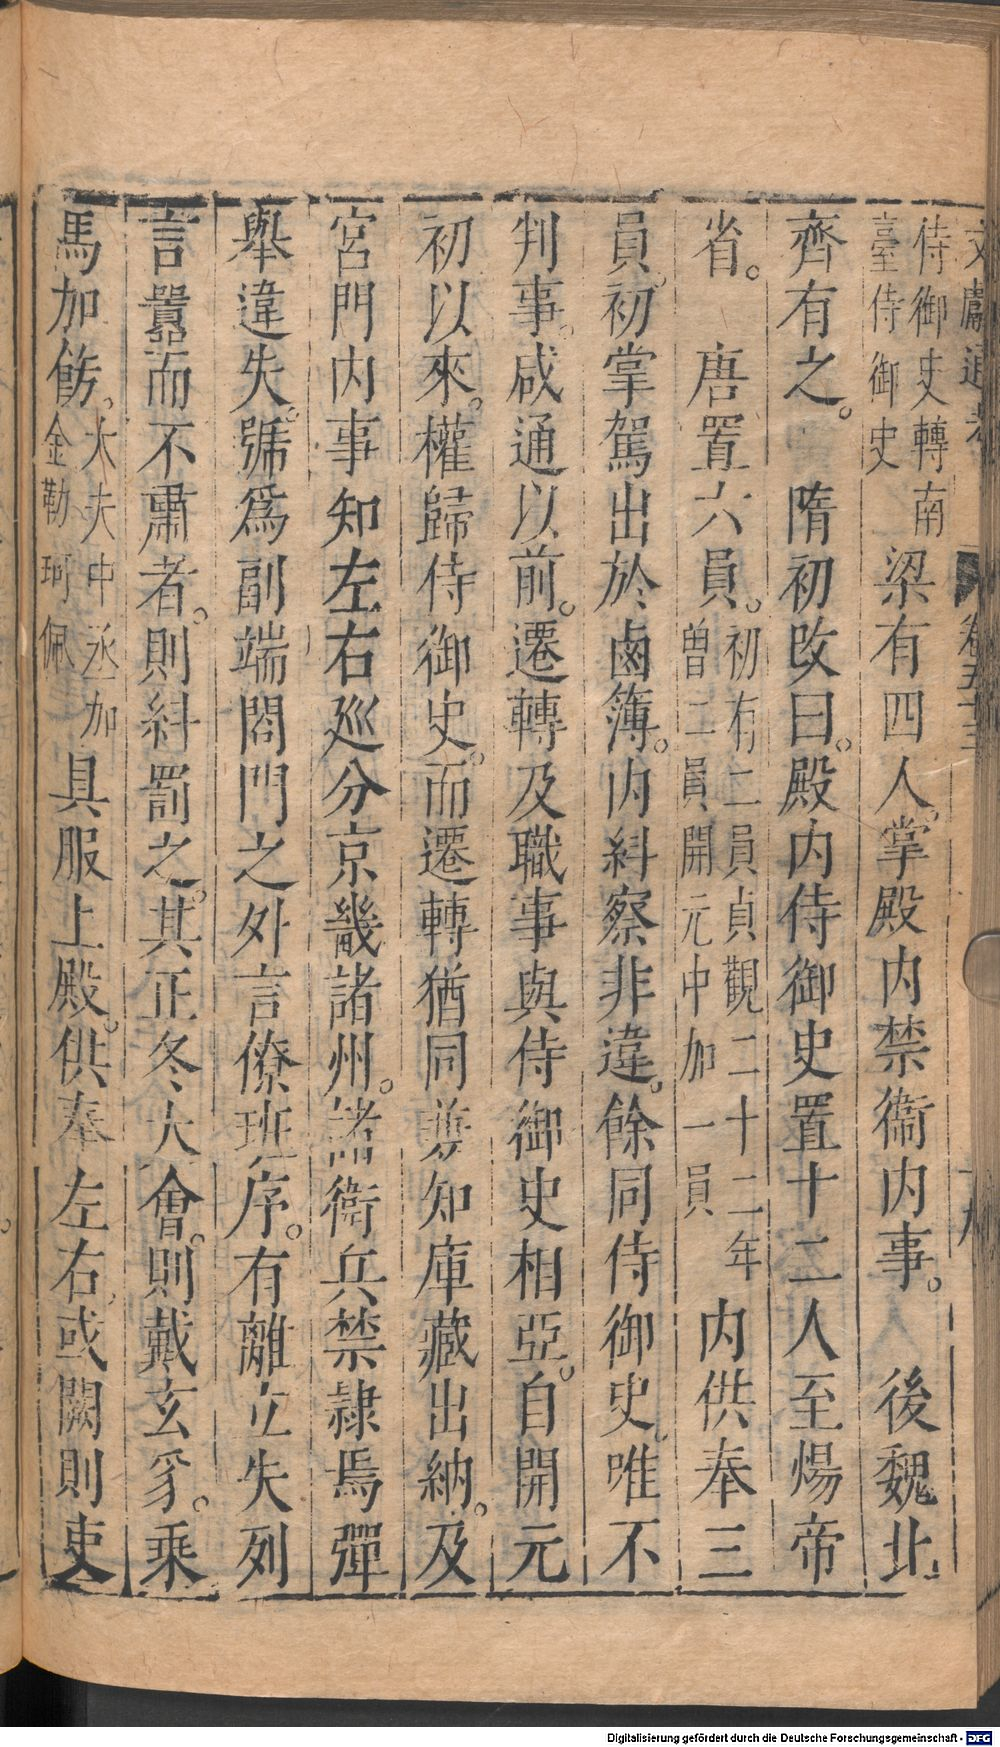 文獻通考 卷五十三 十九
侍御史轉南臺侍御史梁有四人。掌殿內禁衞內事。 後魏北
齊有之。 隋初改曰。殿內侍御史置十二人至煬帝
省。 唐置六員。初有二員貞觀二十二年曾二員開元中加一員 內供奉三
員。初掌駕出於鹵簿。內糾察非違。餘同侍御史。唯不
判事。咸通以前。遷轉及職事與侍御史相亞。自開元
初以來。權歸侍御史。而遷轉猶同兼知庫藏出納。及
宮門內事知左右巡分京畿諸州。諸衞兵禁隷焉彈
舉違失。號爲副端閤門之外言僚班序。有離立失列
言囂而不肅者。則糾罰之。其正冬大會。則戴玄豸。乘
馬加餙。大夫中丞加金勒珂佩具服上殿。供奉左右。或闕則吏
Digitalisierung gefördert durch die Deutsche Forschungsgemeinschaft - DFG